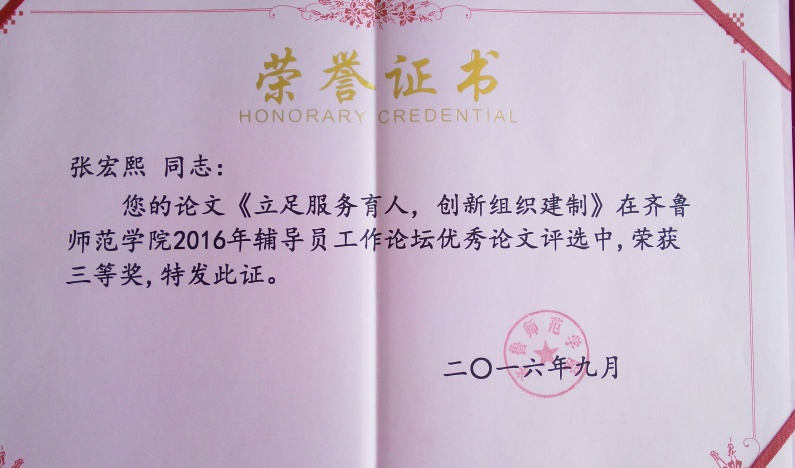 荣誉证书
HONORARY CREDENTIAL
张宏熙 同志：
您的论文《立足服务育人，创新组织建制》在齐鲁
师范学院2016年辅导员工作论坛优秀论文评选中,荣获
三等奖,特发此证。
齐鲁师范学院
二〇一六年九月